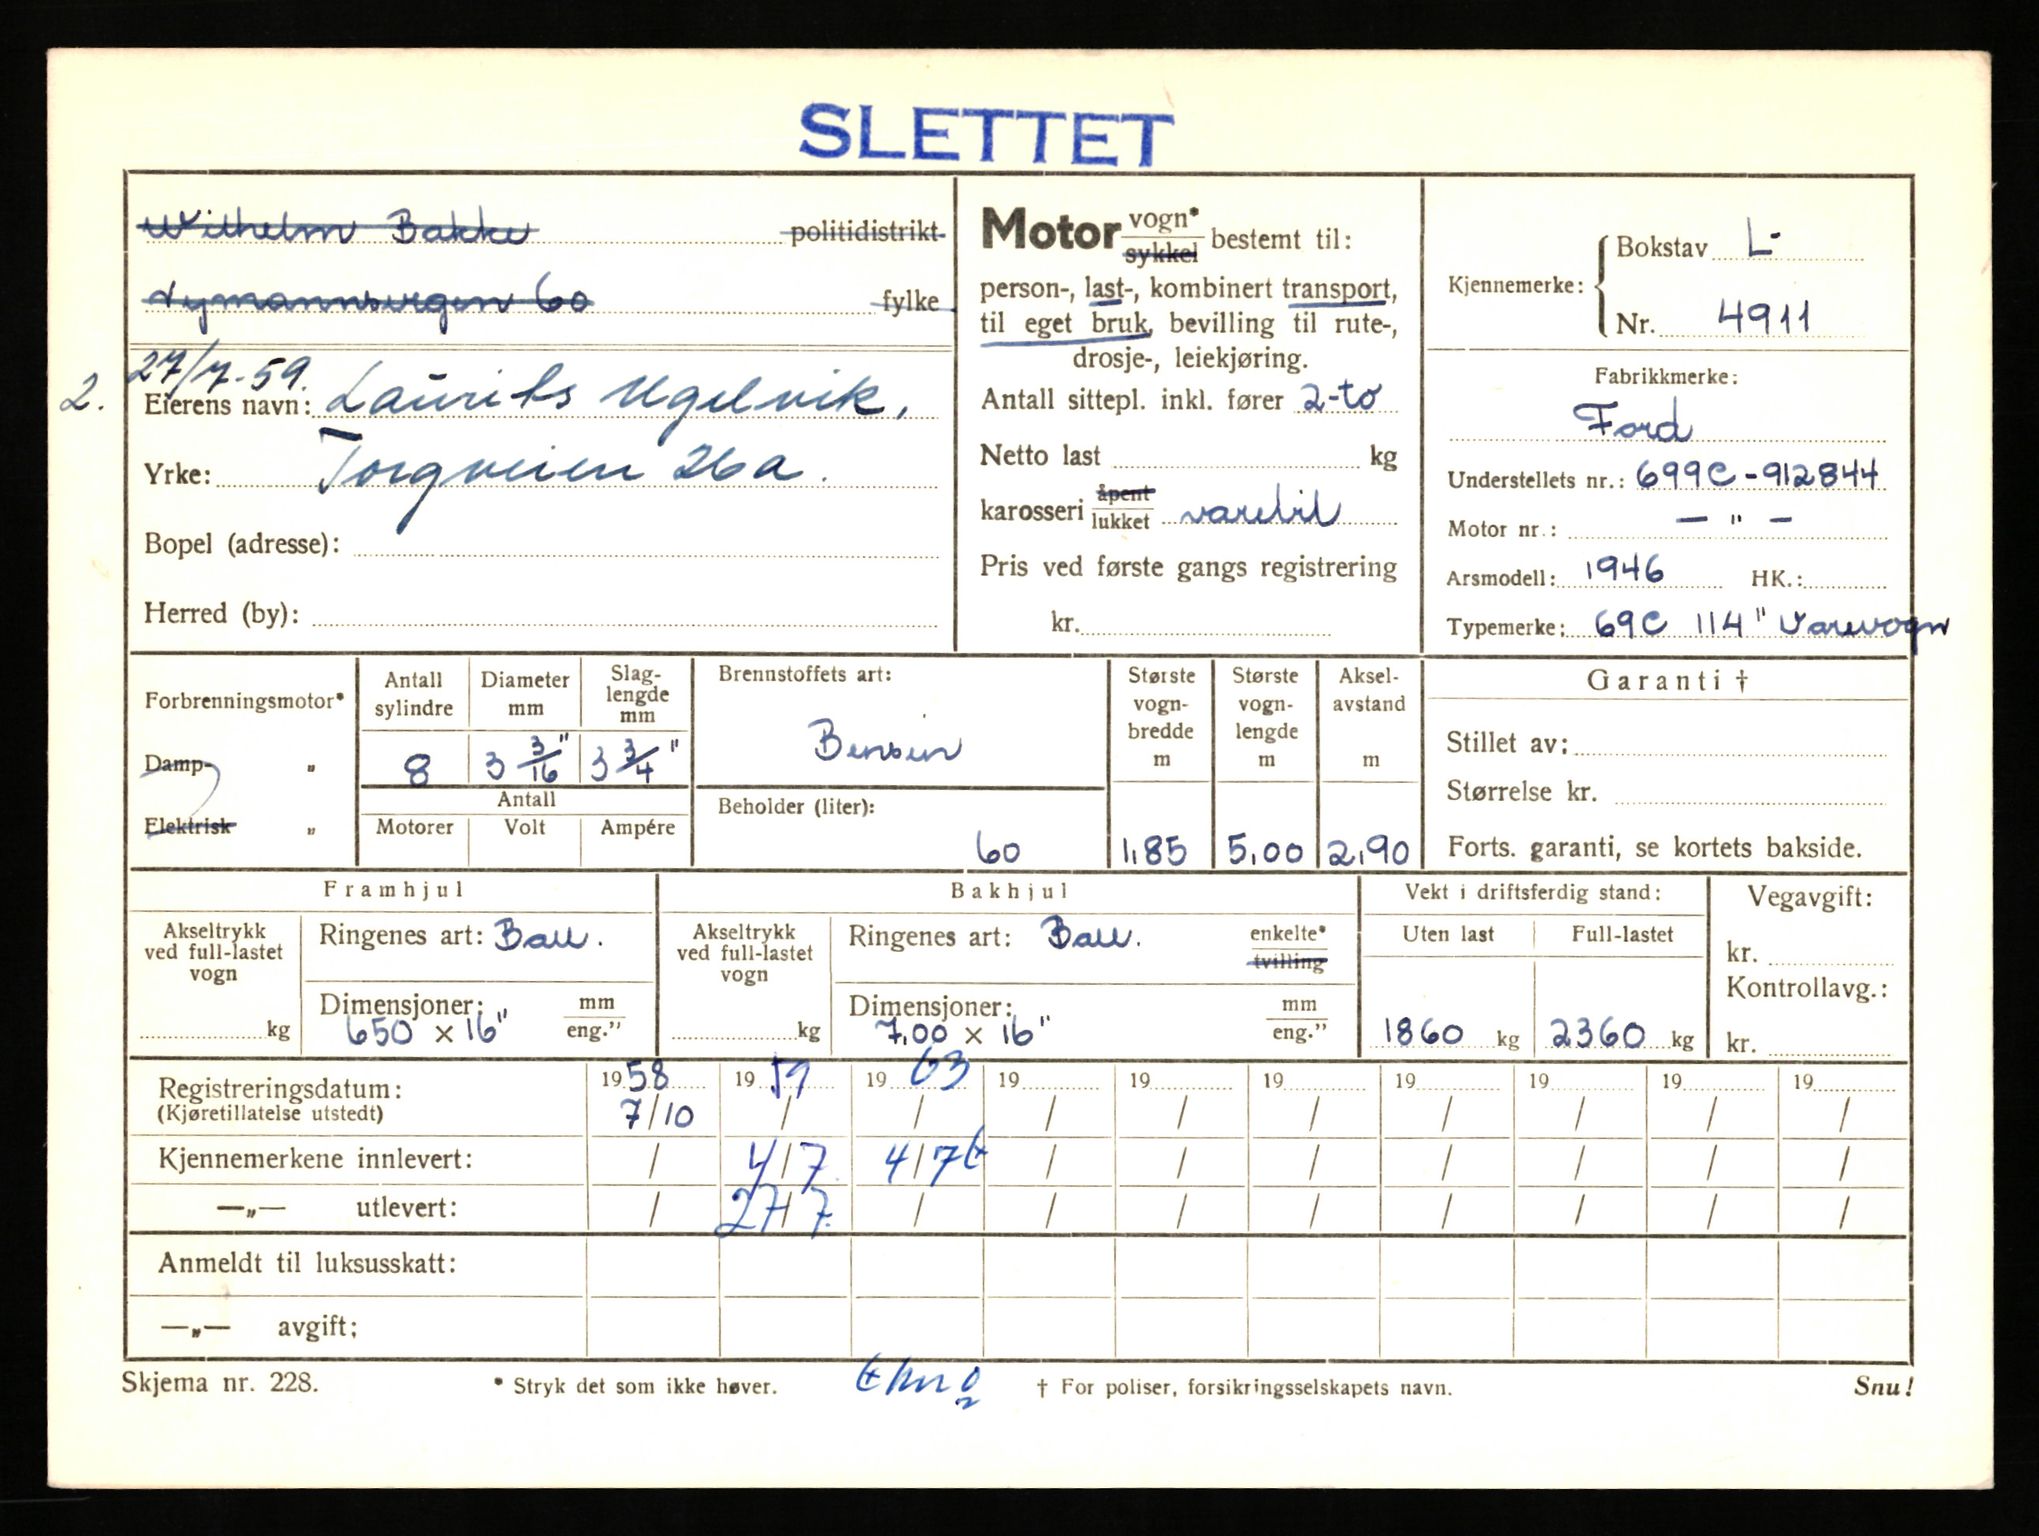 SLETTET
Wilhelm Bakke politidistrikt
60 fylke
27/7-59.
2. Eierens navn: Laurits Ugelvik,
Yrke: Torgveien 26a.
Bopel (adresse):
Herred (by):
Motor vogn* sykkel bestemt til:
person-, last-, kombinert transport,
til eget bruk, bevilling til rute-,
drosje-, leiekjøring.
Antall sittepl. inkl. fører 2-to
Netto last kg
karosseri åpent lukket varebil
Pris ved første gangs registrering
kr.
Kjennemerke: Bokstav L-
Nr. 4911
Fabrikkmerke:
Ford
Understellets nr.: 699C-912844
Motor nr.: — " —
Arsmodell: 1946 HK.:
Typemerke: 69C 114" Varevogn
Forbrenningsmotor*
Damp- "
Elektrisk "
Antall sylindre
8
Diameter mm
3 3/16"
Slag-lengde mm
3 3/4"
Antall
Motorer Volt Ampére
Brennstoffets art:
Bensin
Beholder (liter):
60
Største vogn-bredde m
1,85
Største vogn-lengde m
5,00
Aksel-avstand m
2,90
Garanti †
Stillet av:
Størrelse kr.
Forts. garanti, se kortets bakside.
Framhjul
Akseltrykk ved full-lastet vogn
kg
Ringenes art: Ball.
Dimensjoner: mm eng."
650 x 16"
Bakhjul
Akseltrykk ved full-lastet vogn
kg
Ringenes art: Ball. enkelte* tvilling
Dimensjoner: mm eng."
7,00 x 16"
Vekt i driftsferdig stand:
Uten last Full-lastet
1860 kg 2360 kg
Vegavgift:
kr.
Kontrollavg.:
kr.
Registreringsdatum: 1958 1959 1963 19 19 19 19 19 19 19
(Kjøretillatelse utstedt) 7/10 / / / / / / / / /
Kjennemerkene innlevert: / 4/7 4/7 / / / / / / /
—„— utlevert: / 27/7 / / / / / / / /
Anmeldt til luksusskatt:
—„— avgift;
Skjema nr. 228. * Stryk det som ikke høver. † For poliser, forsikringsselskapets navn. Snu!